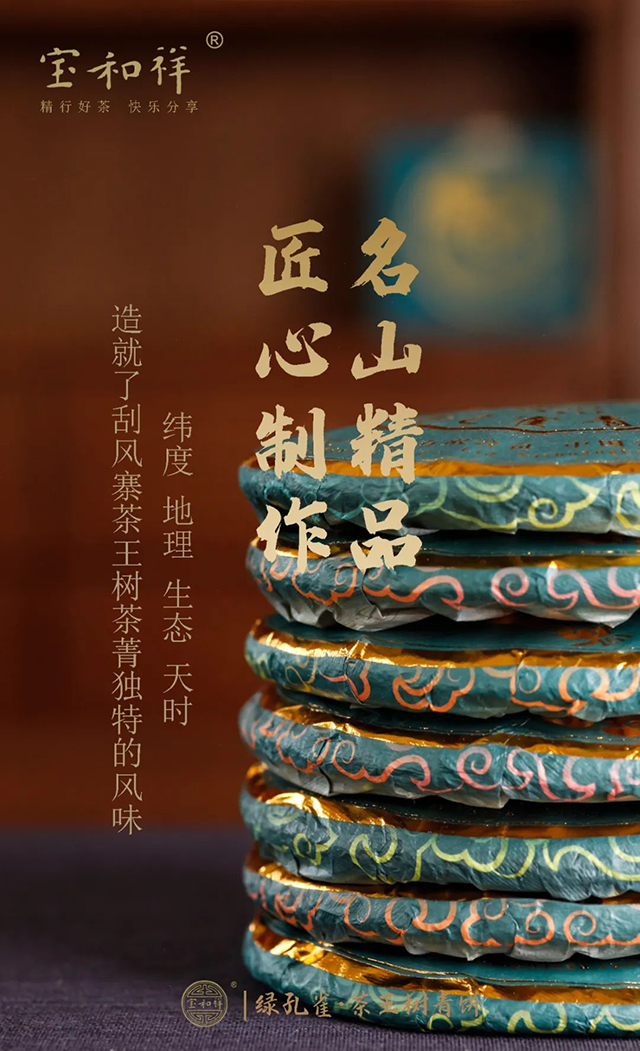 宝和祥®
精行好茶 快乐分享
名山精品
匠心制作
纬度 地理 生态 天时
造就了刮风寨茶王树茶菁独特的风味
宝和祥®
绿孔雀·茶王树青饼